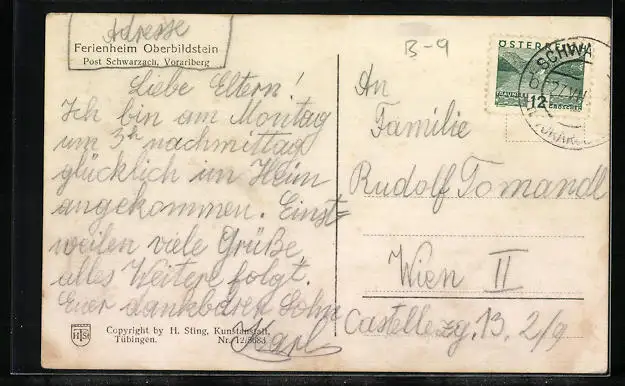 Adresse
Ferienheim Oberbildstein
Post Schwarzach, Vorarlberg
Liebe Eltern!
Ich bin am Montag
um 3h nachmittag
glücklich im Heim
angekommen. Einst=
weilen viele Grüße
alles Weitere folgt.
Euer dankbarer Sohn
Karl
HTS
Copyright by H. Sting, Kunstanstalt,
Tübingen.
Nr. 12/3683
B-9
ÖSTERREICH
12 GROSCHEN
SCHWA
An
Familie
Rudolf Tomandl
Wien II
Castellezg. 13, 2/9